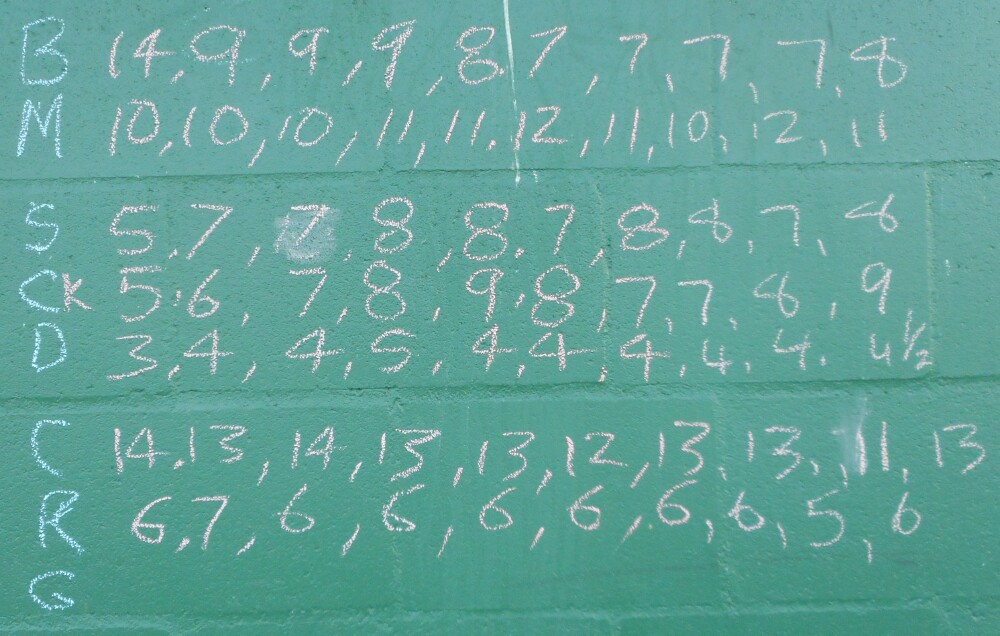 B 14, 9, 9, 9, 8. 7, 7, 7, 7, 8
M 10, 10, 10, 11, 11, 12, 11, 10, 12, 11
S 5, 7, 7, 8, 8, 7, 8, 8, 7, 8
CK 5, 6, 7, 8, 9, 8, 7, 7, 8, 9
D 3, 4, 4, 5, 4, 4, 4, 4, 4, 4½
C 14, 13, 14, 13, 13, 12, 13, 13, 11, 13
R 6, 7, 6, 6, 6, 6, 6, 6, 5, 6
G